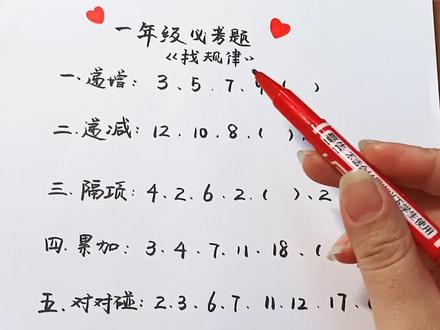 一年级必考题
《找规律》
一.递增: 3、5、7、9( )
二.递减: 12、10、8、( )、
三.隔项: 4、2、6、2、( )、2
四.累加: 3、4、7、11、18、(
五.对对碰: 2、3、6、7、11、12、17、(